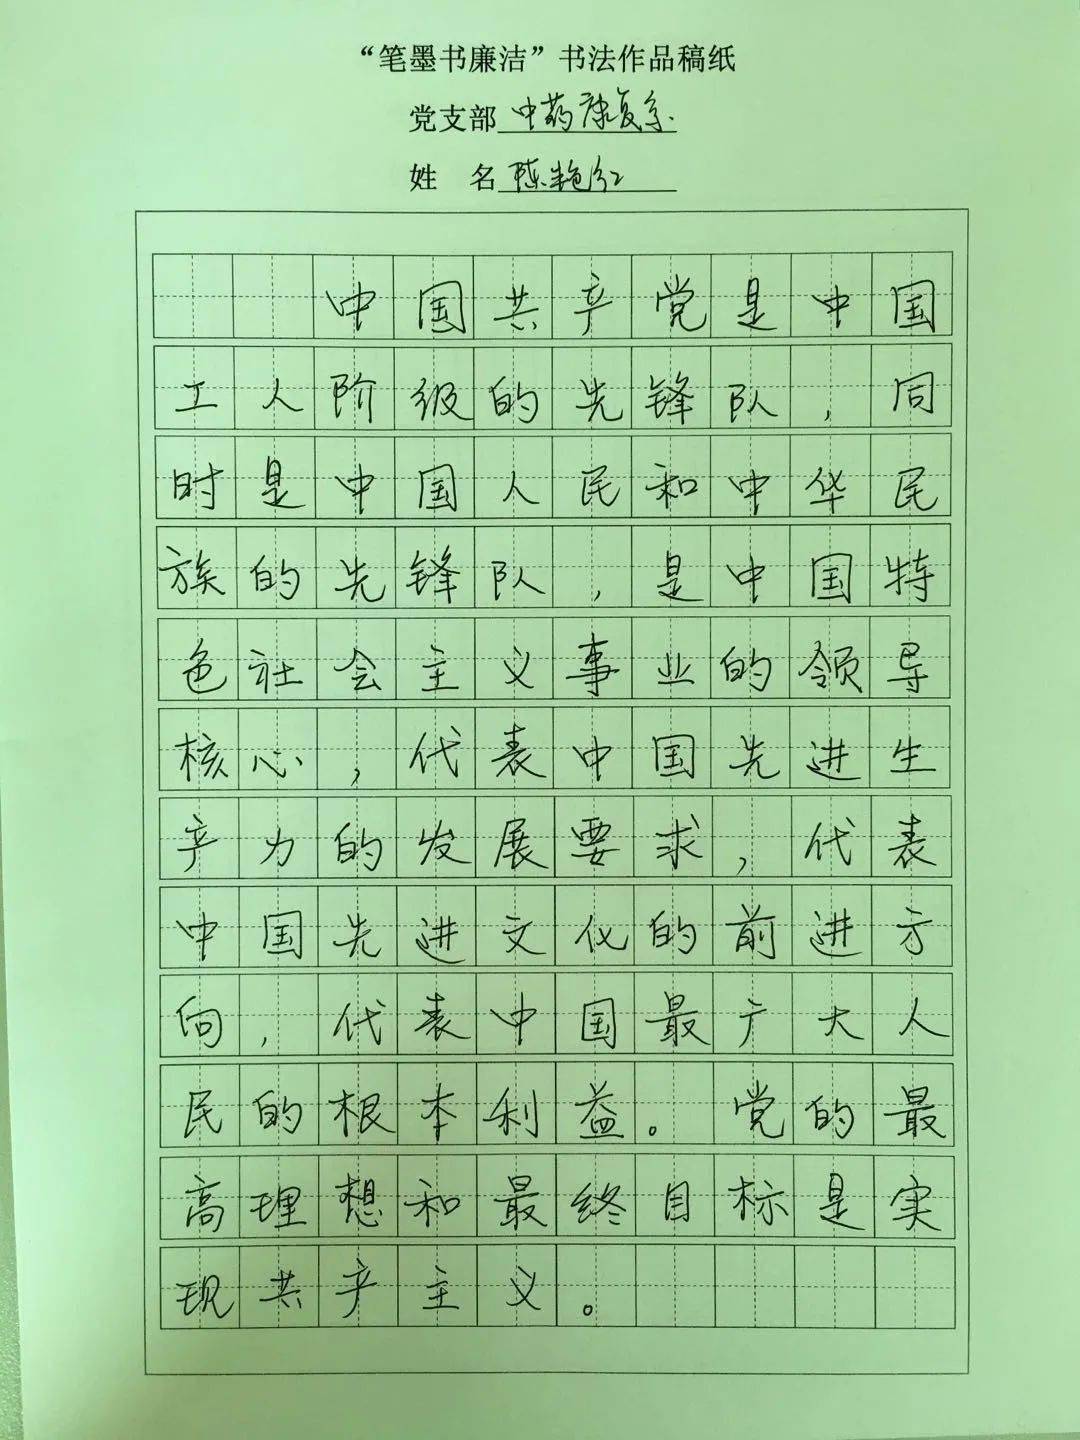 “笔墨书廉洁”书法作品稿纸
党支部 中药康复系
姓 名 陈艳红
中国共产党是中国
工人阶级的先锋队，同
时是中国人民和中华民
族的先锋队，是中国特
色社会主义事业的领导
核心，代表中国先进生
产力的发展要求，代表
中国先进文化的前进方
向，代表中国最广大人
民的根本利益。党的最
高理想和最终目标是实
现共产主义。